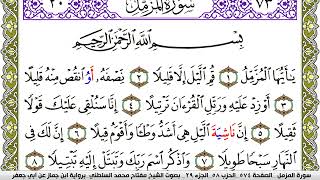 ٢٠ سورة المزمل ٧٣
بِسْمِ اللَّهِ الرَّحْمَٰنِ الرَّحِيمِ
يَٰأَيُّهَا الْمُزَّمِّلُ ١ قُمِ اللَّيْلَ إِلَّا قَلِيلًا ٢ نِّصْفَهُ أَوُ انقُصْ مِنْهُ قَلِيلًا
٣ أَوْ زِدْ عَلَيْهِ وَرَتِّلِ الْقُرْءَانَ تَرْتِيلًا ٤ إِنَّا سَنُلْقِي عَلَيْكَ قَوْلًا
ثَقِيلًا ٥ إِنَّ نَاشِيَةَ الَّيْلِ هِيَ أَشَدُّ وَطْـًٔا وَأَقْوَمُ قِيلًا ٦ إِنَّ لَكَ فِي
النَّهَارِ سَبْحًا طَوِيلًا ٧ وَاذْكُرِ اسْمَ رَبِّكَ وَتَبَتَّلْ إِلَيْهِ تَبْتِيلًا ٨
سورة المزمل الصفحة ٥٧٤ الحزب ٥٨ الجزء ٢٩ بصوت الشيخ مفتاح محمد السلطني برواية ابن جماز عن أبي جعفر